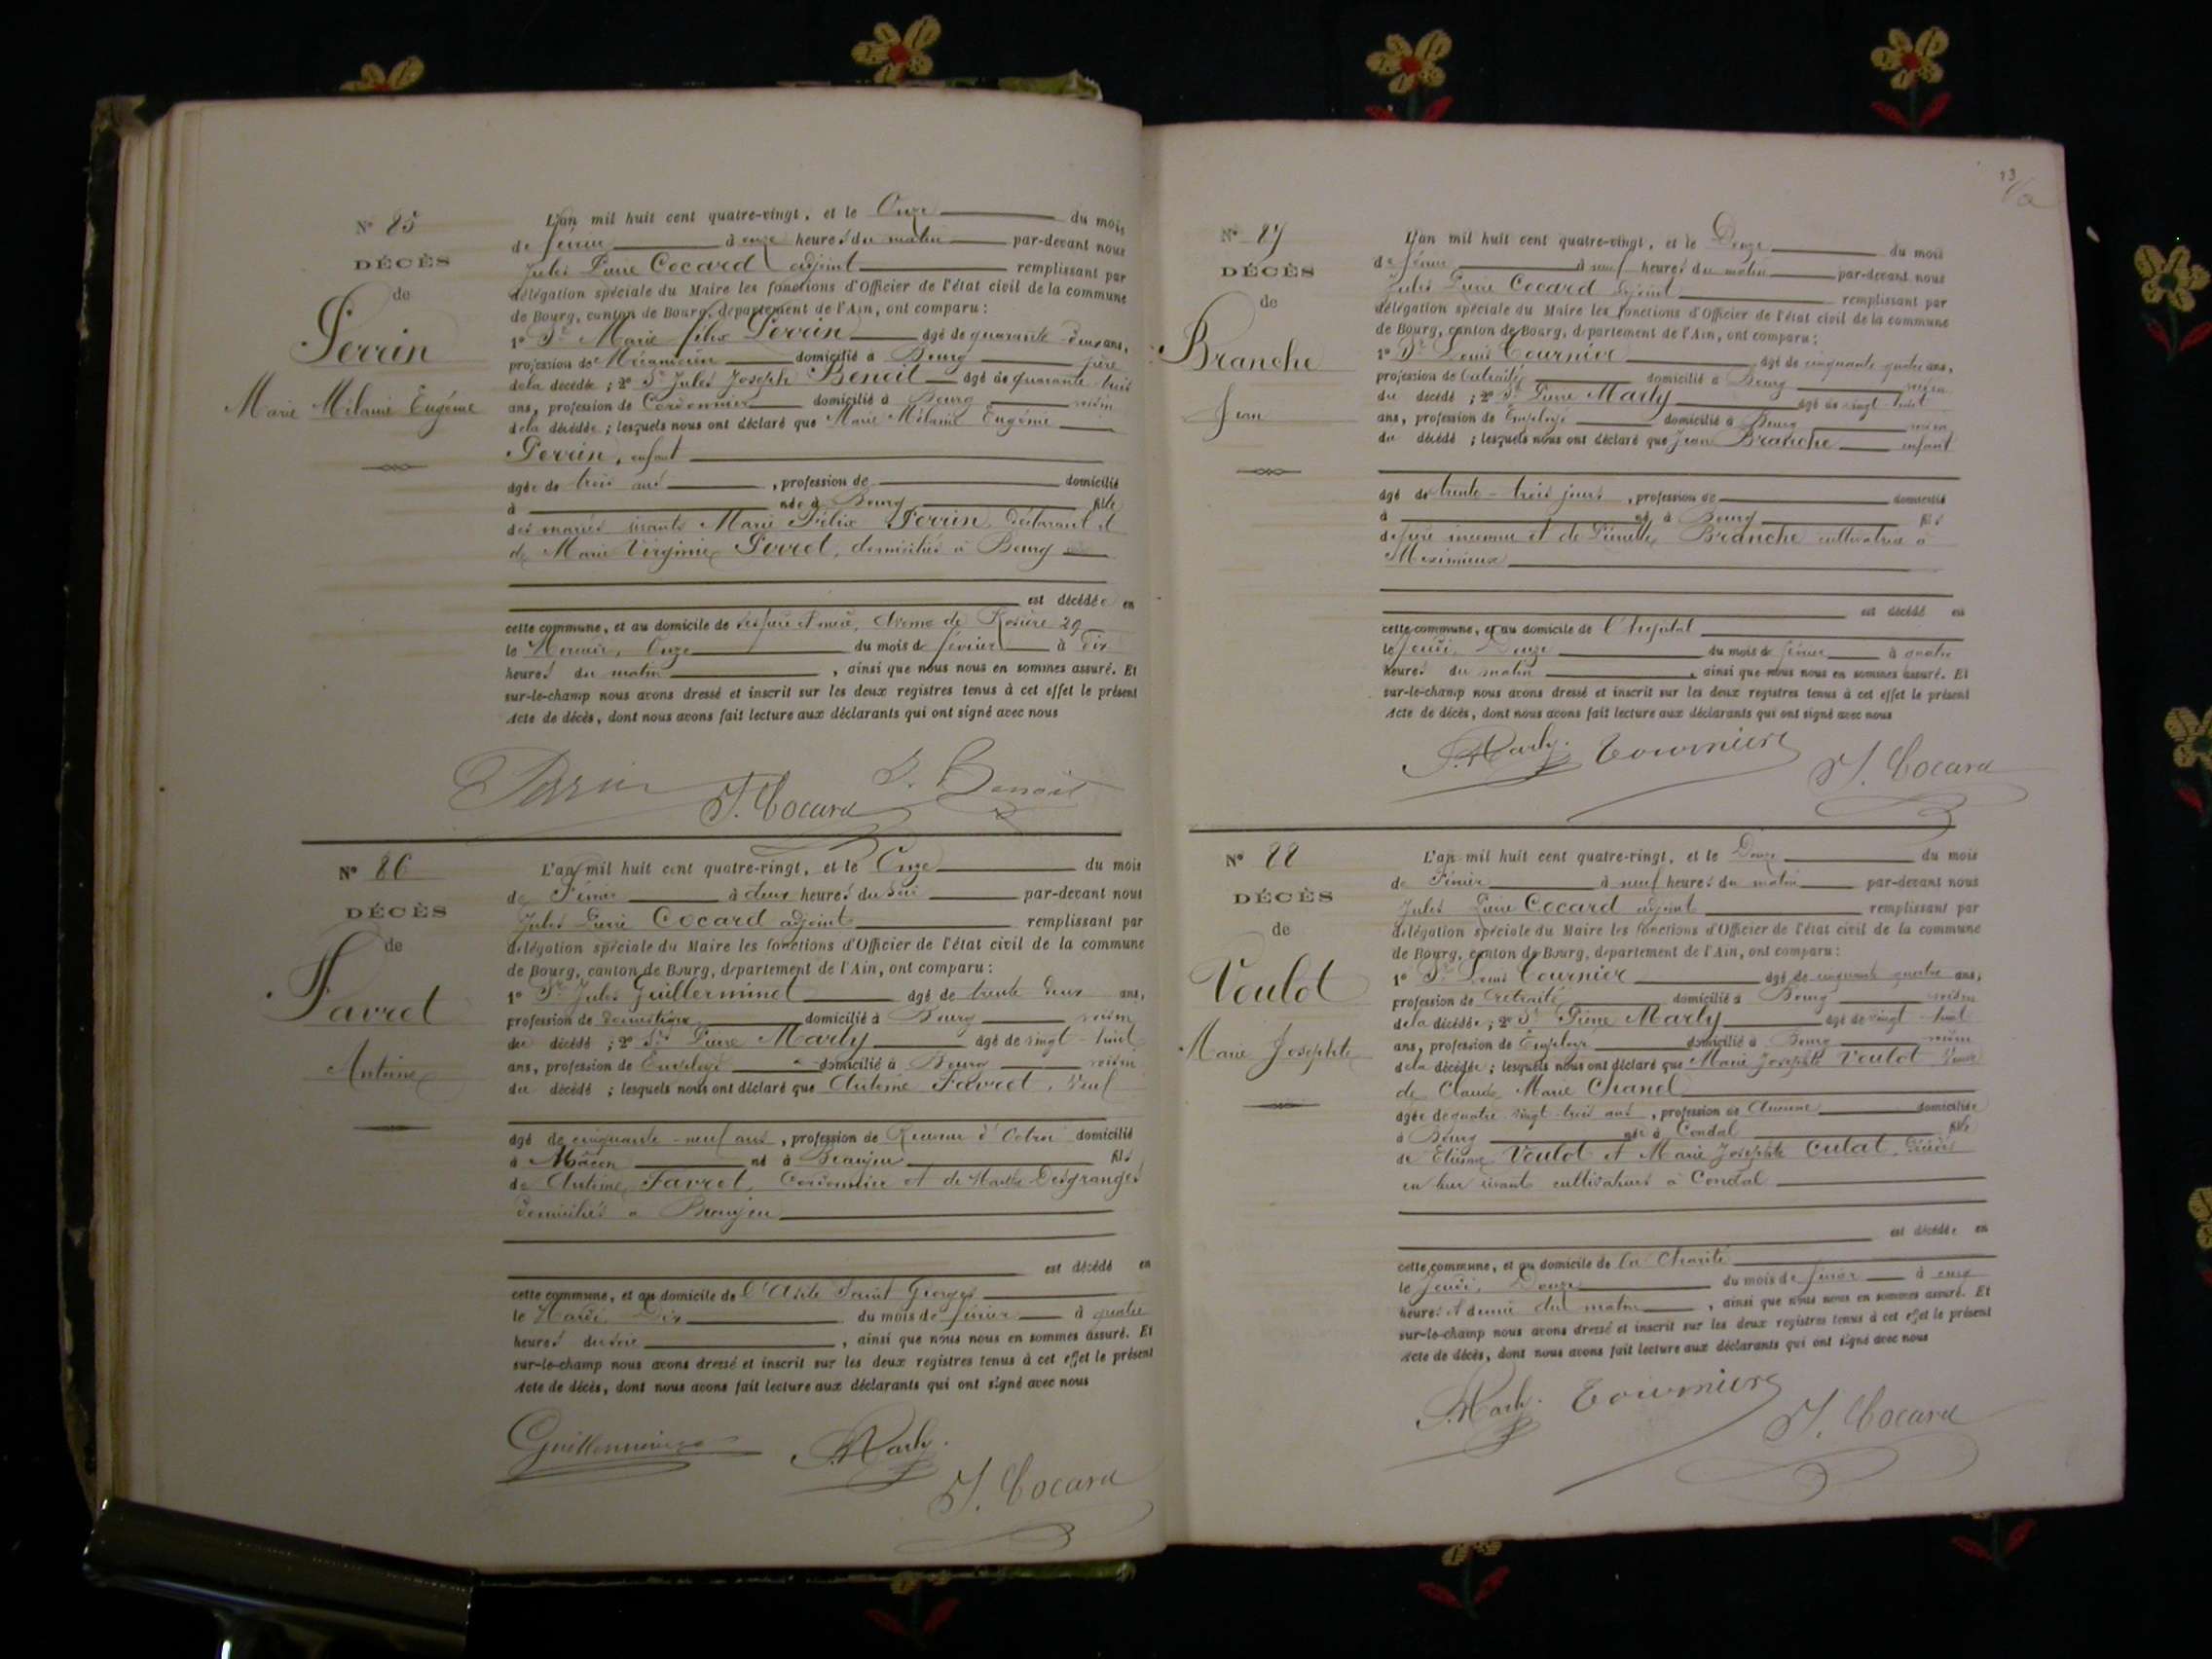 N° 85
DÉCÈS
de
Perrin
Marie Mélanie Eugénie
L'an mil huit cent quatre-vingt, et le Onze du mois
de février à onze heures du matin par-devant nous
Jules Pierre Cocard adjoint remplissant par
délégation spéciale du Maire les fonctions d'Officier de l'état civil de la commune
de Bourg, canton de Bourg, département de l'Ain, ont comparu :
1° Sr Marie Félix Perrin âgé de quarante-deux ans,
profession de Mécanicien domicilié à Bourg père
de la décédée ; 2° Sr Jules Joseph Benoit âgé de quarante huit
ans, profession de Cordonnier domicilié à Bourg voisin
de la décédée ; lesquels nous ont déclaré que Marie Mélanie Eugénie
Perrin, enfant
âgée de trois ans, profession de domicilié
à née à Bourg fille
des mariés vivants Marie Félix Perrin, déclarant et
de Marie Virginie Perret, domiciliés à Bourg
est décédée en
cette commune, et au domicile de ses père et mère, Avenue de Rosière 29
le Mercredi, Onze du mois de février à dix
heures du matin, ainsi que nous nous en sommes assuré. Et
sur-le-champ nous avons dressé et inscrit sur les deux registres tenus à cet effet le présent
Acte de décès, dont nous avons fait lecture aux déclarants qui ont signé avec nous
Perrin J. Cocard Benoit
N° 86
DÉCÈS
de
Favret
Antoine
L'an mil huit cent quatre-vingt, et le Onze du mois
de Février à deux heures du soir par-devant nous
Jules Pierre Cocard adjoint remplissant par
délégation spéciale du Maire les fonctions d'Officier de l'état civil de la commune
de Bourg, canton de Bourg, département de l'Ain, ont comparu :
1° Sr Jules Guillerminet âgé de trente deux ans,
profession de domestique domicilié à Bourg voisin
du décédé ; 2° Sr Pierre Marly âgé de vingt-huit
ans, profession de Employé domicilié à Bourg voisin
du décédé ; lesquels nous ont déclaré que Antoine Favret, veuf
âgé de cinquante-neuf ans, profession de Receveur d'Octroi domicilié
à Mâcon né à Beaujeu fils
de Antoine Favret, Cordonnier et de Marthe Desgranges
domiciliés à Beaujeu
est décédé en
cette commune, et au domicile de l'Asile Saint Georges
le Mardi, Dix du mois de février à quatre
heures du soir, ainsi que nous nous en sommes assuré. Et
sur-le-champ nous avons dressé et inscrit sur les deux registres tenus à cet effet le présent
Acte de décès, dont nous avons fait lecture aux déclarants qui ont signé avec nous
Guillerminet P. Marly. J. Cocard
N° 87
DÉCÈS
de
Branche
Jean
L'an mil huit cent quatre-vingt, et le Douze du mois
de février à neuf heures du matin par-devant nous
Jules Pierre Cocard adjoint remplissant par
délégation spéciale du Maire les fonctions d'Officier de l'état civil de la commune
de Bourg, canton de Bourg, département de l'Ain, ont comparu :
1° Sr Louis Tournier âgé de cinquante quatre ans,
profession de retraité domicilié à Bourg voisin
du décédé ; 2° Sr Pierre Marly âgé de vingt-huit
ans, profession de Employé domicilié à Bourg voisin
du décédé ; lesquels nous ont déclaré que Jean Branche enfant
âgé de trente-trois jours, profession de domicilié
à né à Bourg fils
de père inconnu et de Pierrette Branche cultivatrice à
Meximieux
est décédé en
cette commune, et au domicile de l'hopital
le Jeudi, Douze du mois de février à quatre
heures du matin, ainsi que nous nous en sommes assuré. Et
sur-le-champ nous avons dressé et inscrit sur les deux registres tenus à cet effet le présent
Acte de décès, dont nous avons fait lecture aux déclarants qui ont signé avec nous
P. Marly. Tournier J. Cocard
N° 88
DÉCÈS
de
Voulot
Marie Josephte
L'an mil huit cent quatre-vingt, et le Douze du mois
de Février à neuf heures du matin par-devant nous
Jules Pierre Cocard adjoint remplissant par
délégation spéciale du Maire les fonctions d'Officier de l'état civil de la commune
de Bourg, canton de Bourg, département de l'Ain, ont comparu :
1° Sr Louis Tournier âgé de cinquante quatre ans,
profession de retraité domicilié à Bourg voisin
de la décédée ; 2° Sr Pierre Marly âgé de vingt-huit
ans, profession de Employé domicilié à Bourg voisin
de la décédée ; lesquels nous ont déclaré que Marie Josephte Voulot Veuve
de Claude Marie Chanel
âgée de quatre vingt-trois ans, profession de Aucune domiciliée
à Bourg née à Condal fille
de Etienne Voulot et Marie Josephte Culat, décédés
en leur vivant cultivateurs à Condal
est décédée en
cette commune, et au domicile de la Charité
le Jeudi, Douze du mois de février à cinq
heures et demie du matin, ainsi que nous nous en sommes assuré. Et
sur-le-champ nous avons dressé et inscrit sur les deux registres tenus à cet effet le présent
Acte de décès, dont nous avons fait lecture aux déclarants qui ont signé avec nous
P. Marly. Tournier J. Cocard